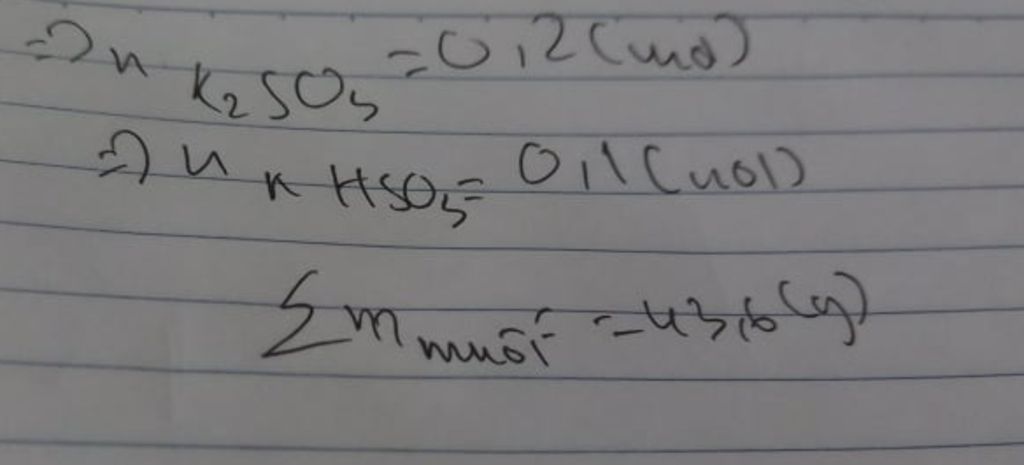 => n K₂SO₃ = 0,2 (mol)
=> n KHSO₃ = 0,1 (mol)
∑ m muối = 43,6 (g)